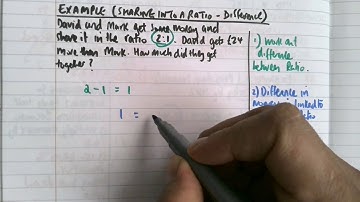 EXAMPLE (SHARING INTO A RATIO - Difference)
David and Mark get some money and
share it in the ratio 2:1. David gets £24
more than Mark. How much did they get
together?
2 - 1 = 1
1 =
1) Work out
difference
between Ratio.
2) Difference in
money is linked to